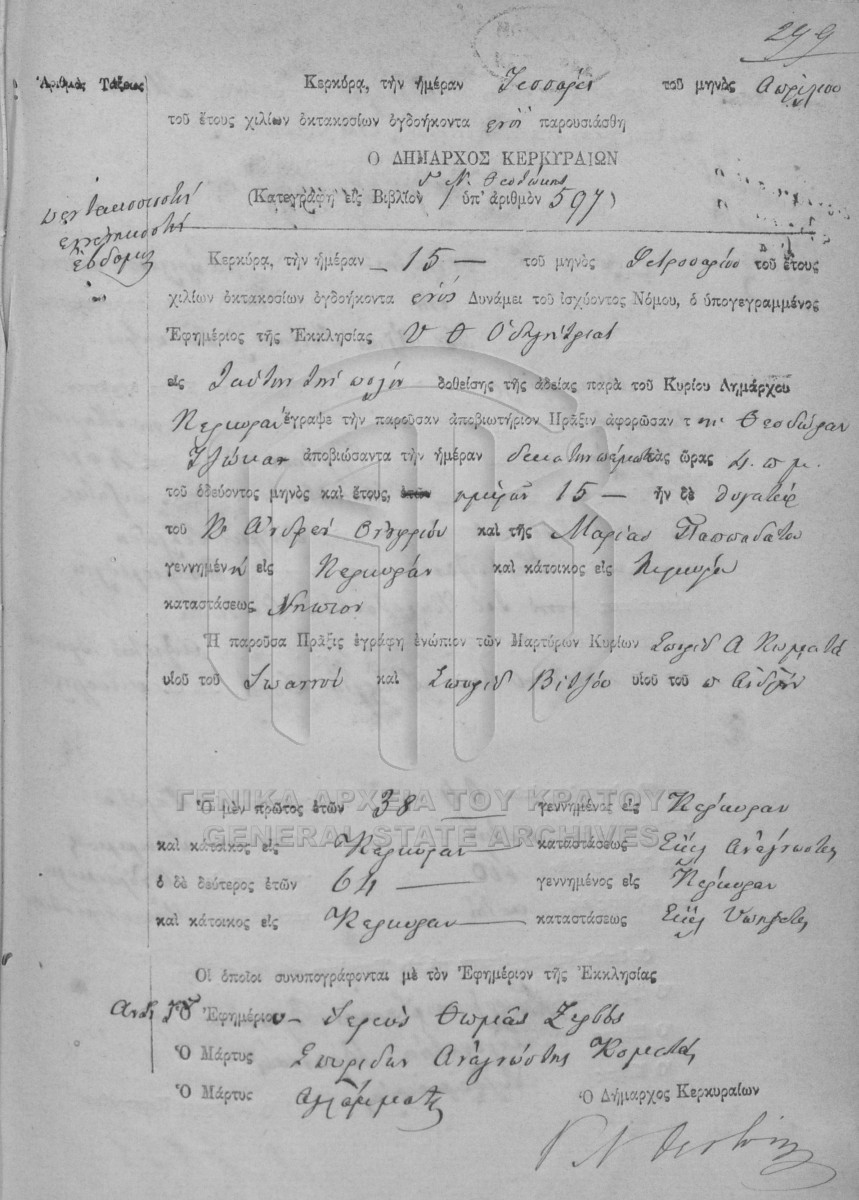 299
Ἀριθμὸς Τάξεως
Κερκύρα, τὴν ἡμέραν Τεσσάρες τοῦ μηνὸς Απριλιου
τοῦ ἔτους χιλίων ὀκτακοσίων ὀγδοήκοντα ενός παρουσιάσθη
Ὁ ΔΗΜΑΡΧΟΣ ΚΕΡΚΥΡΑΙΩΝ
Γ Ν. Θεοτόκης
(Κατεγράφη εἰς Βιβλίον ὑπ' ἀριθμὸν 597)
πεντακοσιοστή
ενενηκοστή
ἑβδομη
Κερκύρα, τὴν ἡμέραν 15 τοῦ μηνὸς τοῦ ἔτους
χιλίων ὀκτακοσίων ὀγδοήκοντα ενός Δυνάμει τοῦ ἰσχύοντος Νόμου, ὁ ὑπογεγραμμένος
Ἐφημέριος τῆς Ἐκκλησίας Υ Θ Οδηγητριας
εἰς ταύτην την πολιν δοθείσης τῆς ἀδείας παρὰ τοῦ Κυρίου Δημάρχου
Κερκυραν ἔγραψε τὴν παροῦσαν ἀποβιωτήριον Πρᾶξιν ἀφορῶσαν τ ην Θεοδώραν
ἀποβιώσαντα τὴν ἡμέραν δεκατην πέμπτην ὥρας 4. π μ.
τοῦ ὁδεύοντος μηνὸς καὶ ἔτους, ἐτῶν ημερῶν 15 ἦν δὲ θυγατέρ
τοῦ Κ Ανδρεα Ονουφριου καὶ τῆς Μαρίας Παππαδατου
γεννημέν η εἰς Κερκυραν καὶ κάτοικος εἰς Κερκυρα
καταστάσεως Νηπιον
Ἡ παροῦσα Πρᾶξις ἐγράφη ἐνώπιον τῶν Μαρτύρων Κυρίων Σπυριδ Α Κομπατα
υἱοῦ τοῦ Ιωαννου καὶ Σπυριδ Βιτζου υἱοῦ τοῦ π Ανδρέα
ΓΕΝΙΚΑ ΑΡΧΕΙΑ ΤΟΥ ΚΡΑΤΟΥΣ
GENERAL STATE ARCHIVES
Ὁ μὲν πρῶτος ἐτῶν 38 γεννημένος εἰς Κερκυραν
καὶ κάτοικος εἰς Κερκυραν καταστάσεως Εκκλ Αναγνωστης
ὁ δὲ δεύτερος ἐτῶν 64 γεννημένος εἰς Κερκυραν
καὶ κάτοικος εἰς Κερκυραν καταστάσεως Εκκλ Υπηρετης
Οἱ ὁποῖοι συνυπογράφονται μὲ τὸν Ἐφημέριον τῆς Ἐκκλησίας
Ὁ Ἐφημέριου Ιερευς Θωμᾶς Ζερβος
Ὁ Μάρτυς Σπυριδων Αναγνωστης Κομπατας
Ὁ Μάρτυς αγραμματος Ὁ Δήμαρχος Κερκυραίων
Γ Ν Θεοτόκης